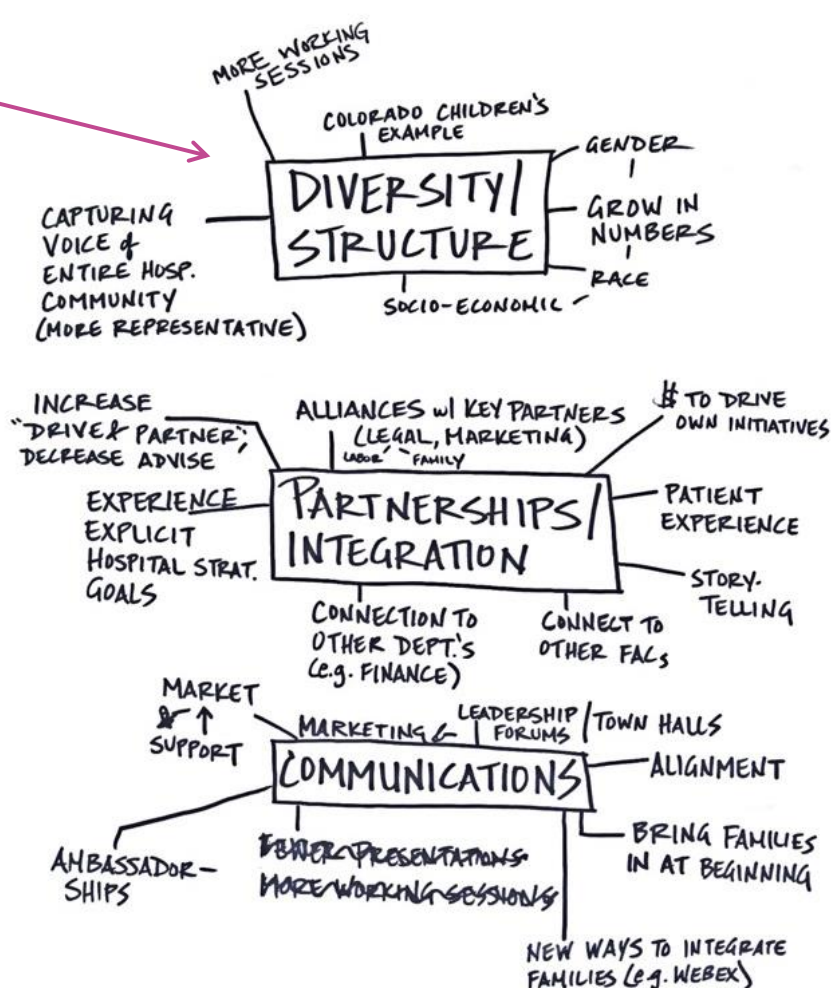 MORE WORKING
SESSIONS
COLORADO CHILDREN'S
EXAMPLE
DIVERSITY/
STRUCTURE
GENDER
GROW IN
NUMBERS
RACE
SOCIO-ECONOMIC
CAPTURING
VOICE of
ENTIRE HOSP.
COMMUNITY
(MORE REPRESENTATIVE)
INCREASE
"DRIVE & PARTNER";
DECREASE ADVISE
ALLIANCES w/ KEY PARTNERS
(LEGAL, MARKETING)
LABOR FAMILY
$ TO DRIVE
OWN INITIATIVES
PARTNERSHIPS/
INTEGRATION
EXPERIENCE
EXPLICIT
HOSPITAL STRAT.
GOALS
PATIENT
EXPERIENCE
STORY-
TELLING
CONNECTION TO
OTHER DEPT.'S
(e.g. FINANCE)
CONNECT TO
OTHER FACs
MARKET
& ↑
SUPPORT
MARKETING &
LEADERSHIP
FORUMS / TOWN HALLS
COMMUNICATIONS
ALIGNMENT
BRING FAMILIES
IN AT BEGINNING
AMBASSADOR-
SHIPS
FEWER PRESENTATIONS
MORE WORKING SESSIONS
NEW WAYS TO INTEGRATE
FAMILIES (e.g. WEBEX)